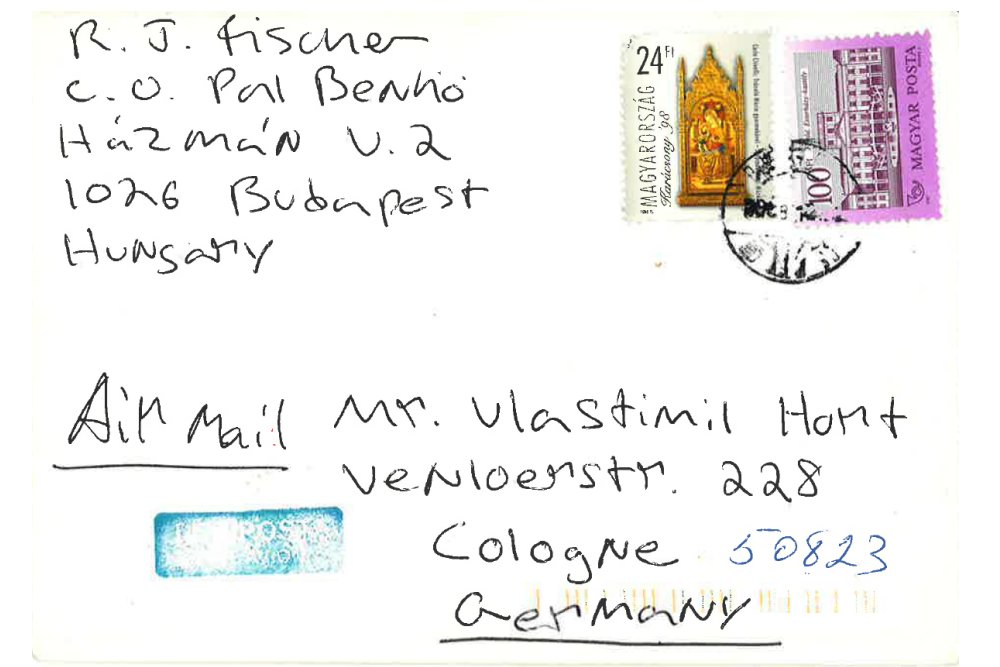 R. J. Fischer
C.O. Pal Benkö
Házmán U.2
1026 Budapest
Hungary
24 Ft
MAGYARORSZÁG
Karácsony '98
100 Ft
MAGYAR POSTA
Air Mail
Mr. Vlastimil Hort
Venloerstr. 228
Cologne 50823
Germany